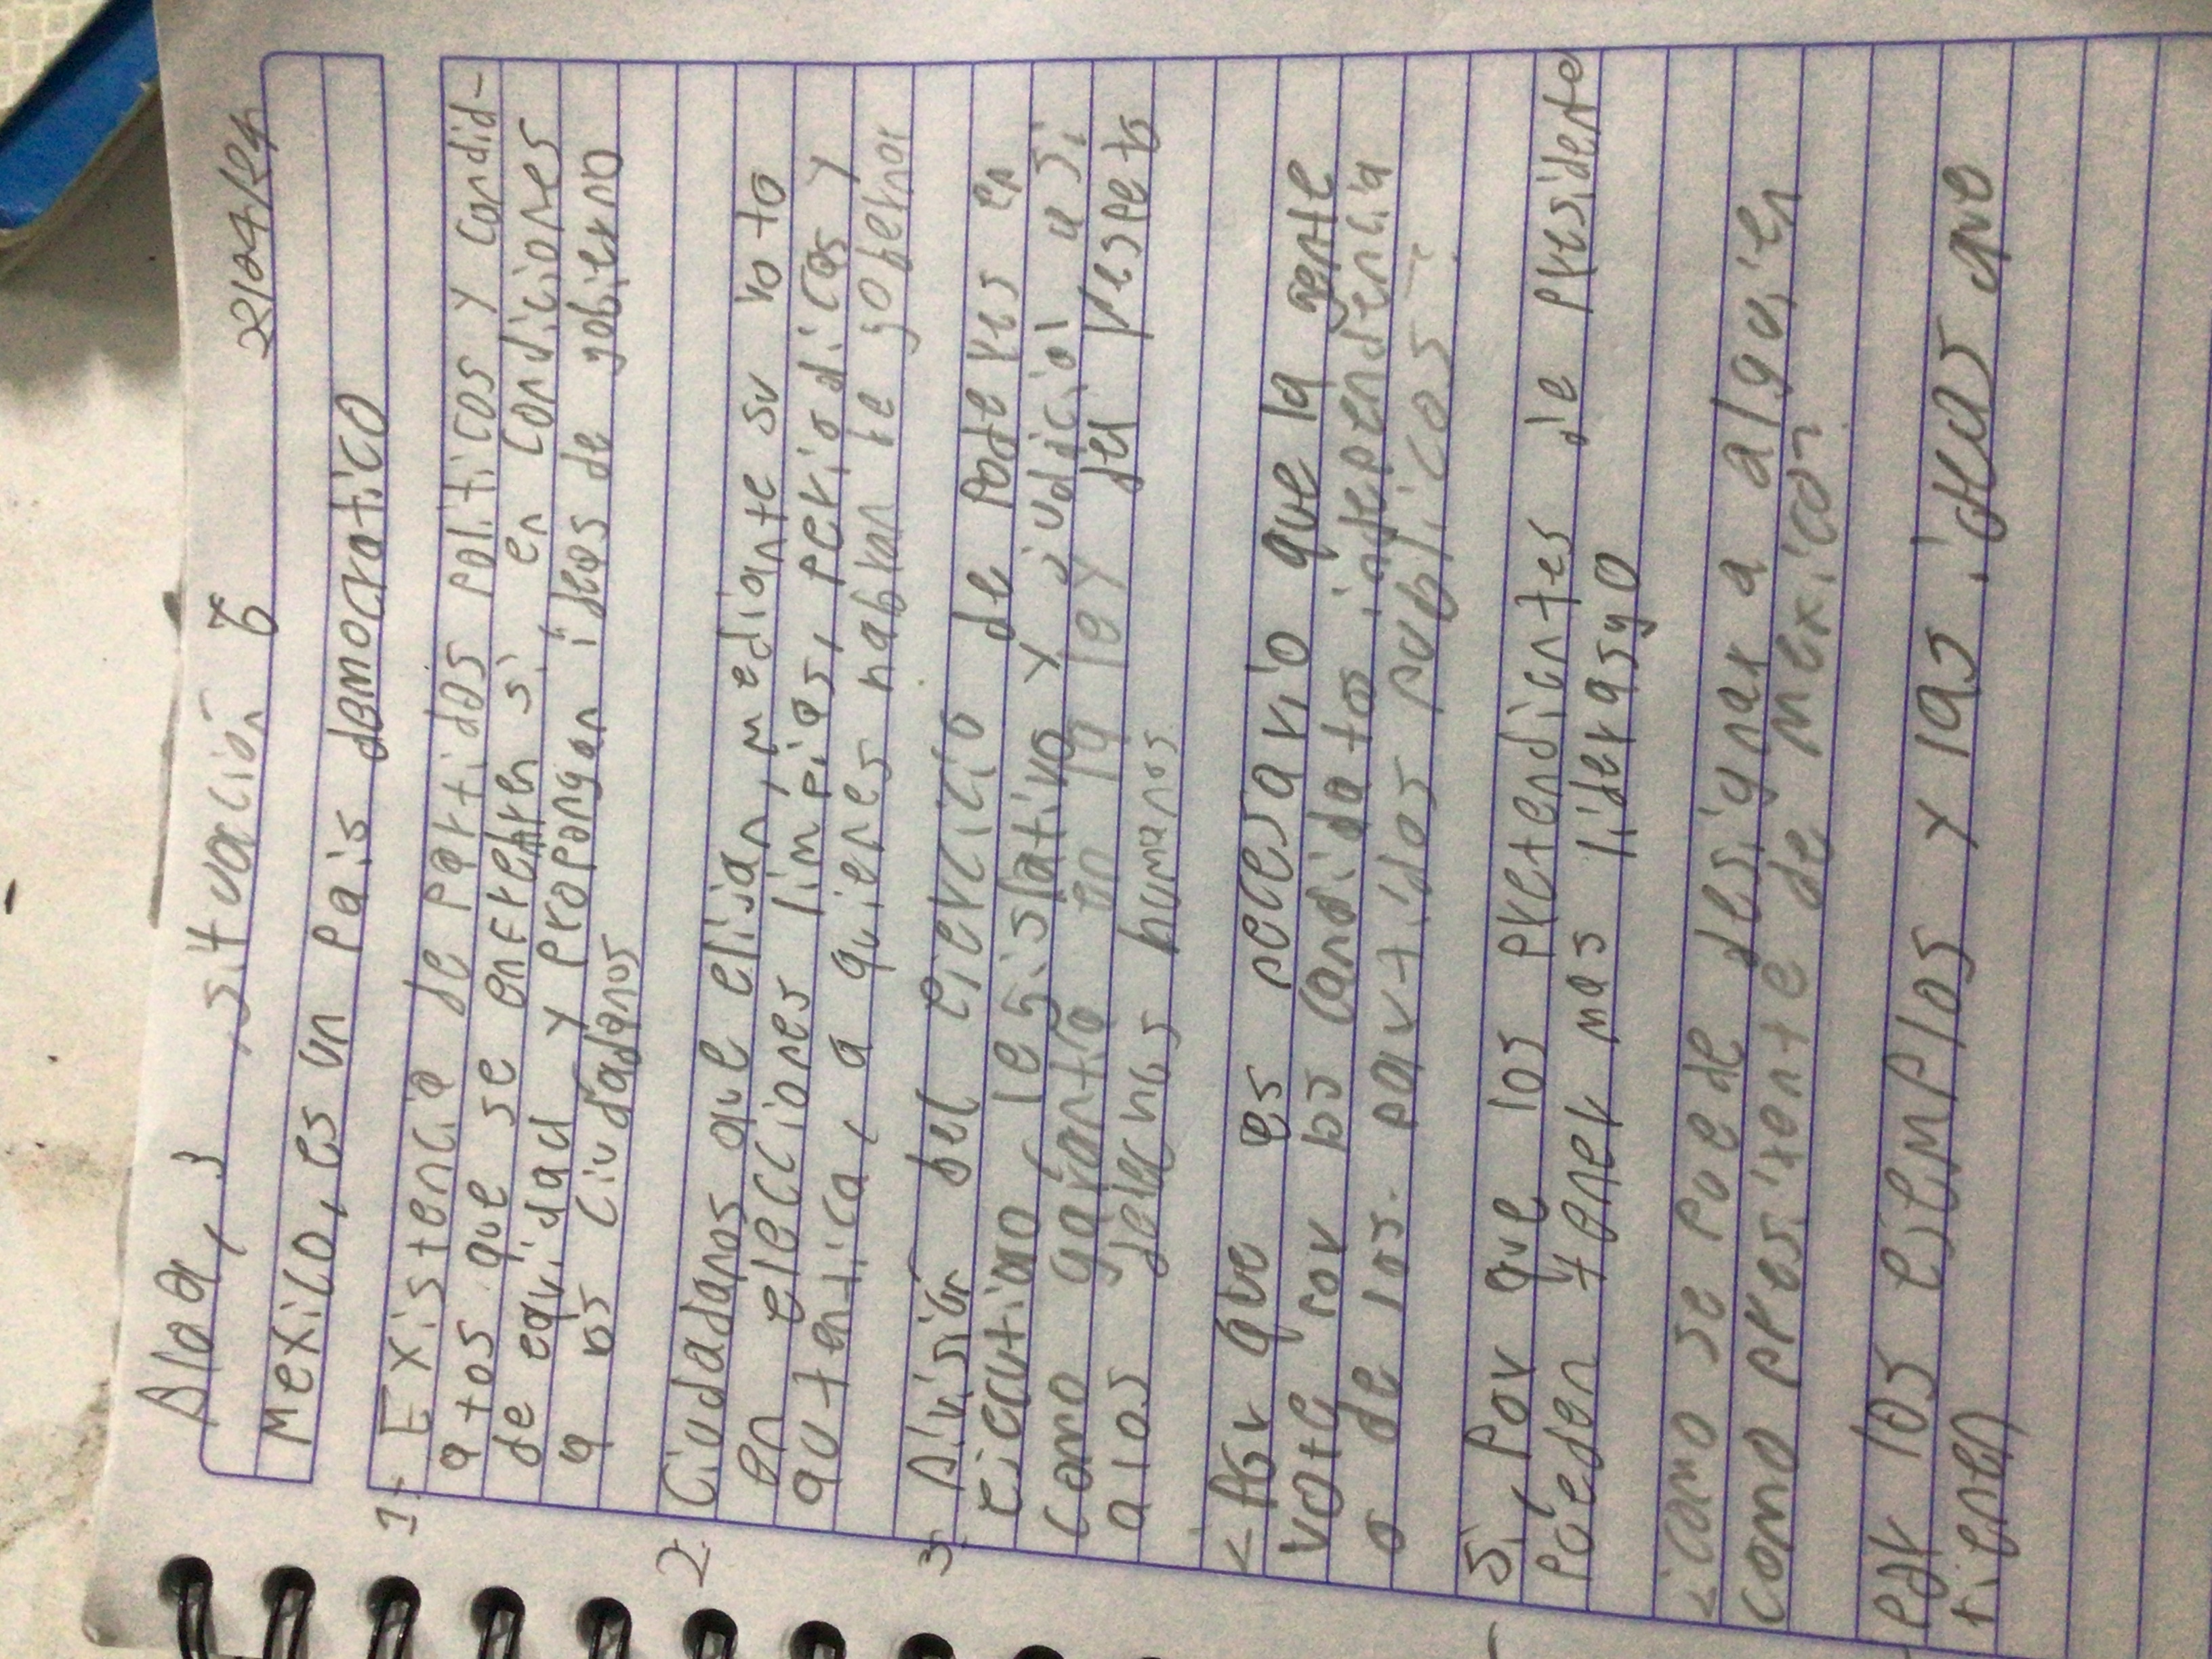 Bloq, 3 situación 6
22/04/24
Mexico, es un Pais democratico
1. Existencia de partidos politicos y candid-
atos que se enfrenten si en condiciones
de equidad y propongan ideas de gobierno
a los Ciudadanos
2. Ciudadanos que elijan, mediante su voto
en elecciones limpias, periodicas y
autentica, a quienes habran de gobernar
3. División del ejercicio de Poderes en
ejecutivo legislativo y judicial asi
como garantia en la ley del respeto
a los derechos humanos
¿Por que es necesario que la gente
vote por los candidatos independencia
o de los. partidos publicos?
5, Por que los pretendientes de presidente
Pueden tener mas liderasgo
¿como se puede designar a alguien
como presixente de mexico?
por los ejemplos y las ideas que
tienen